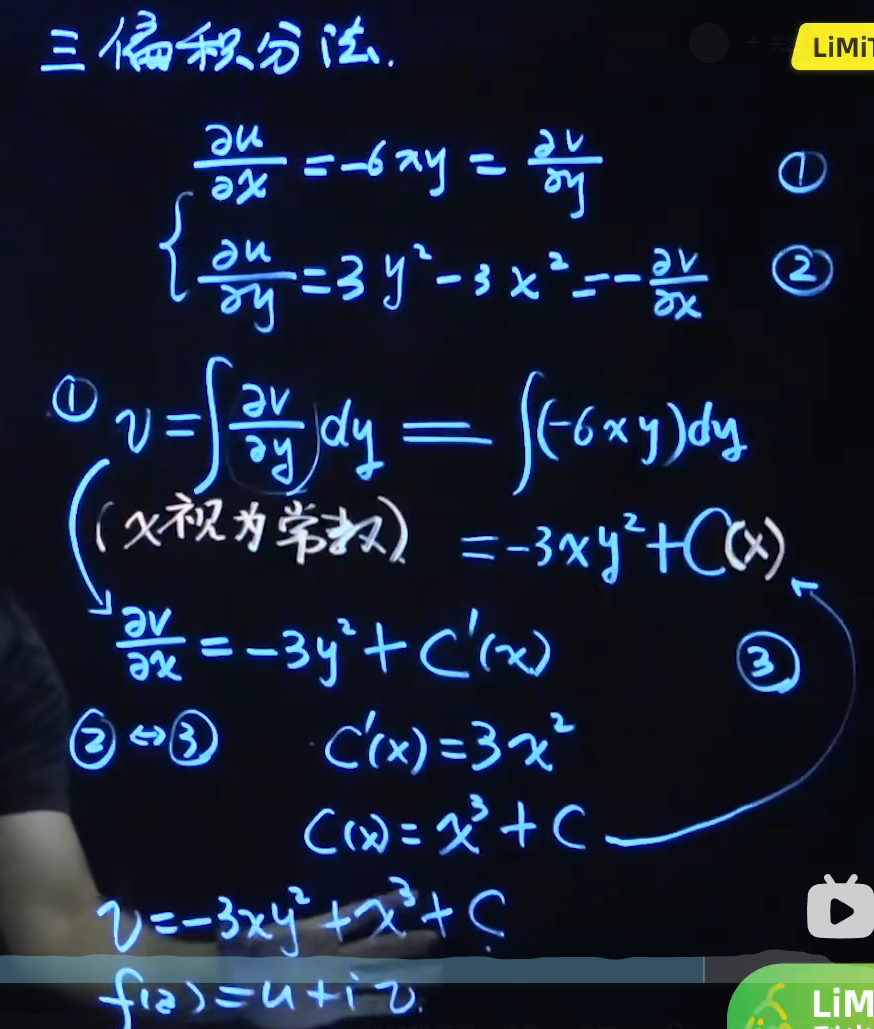 三 偏积分法.
LiMiT
∂u/∂x = -6xy = ∂v/∂y ①
{ ∂u/∂y = 3y² - 3x² = -∂v/∂x ②
① v = ∫ ∂v/∂y dy = ∫(-6xy)dy
(x视为常数) = -3xy² + C(x)
∂v/∂x = -3y² + C'(x) ③
② ⇔ ③ C'(x) = 3x²
C(x) = x³ + C
v = -3xy² + x³ + C
f(z) = u + i v.
LiM